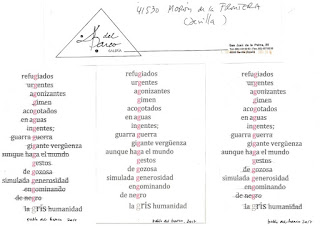 41530 Morón de la Frontera
(Sevilla)
del
Barco
GALERÍA
refugiados
urgentes
agonizantes
gimen
acogotados
en aguas
ingentes;
guarra guerra
gigante vergüenza
aunque haga el mundo
gestos
de gozosa
simulada generosidad
engominando
de negro
la gris humanidad
refugiados
urgentes
agonizantes
gimen
acogotados
en aguas
ingentes;
guarra guerra
gigante vergüenza
aunque haga el mundo
gestos
de gozosa
simulada generosidad
engominando
de negro
la gris humanidad
refugiados
urgentes
agonizantes
gimen
acogotados
en aguas
ingentes;
guarra guerra
gigante vergüenza
aunque haga el mundo
gestos
de gozosa
simulada generosidad
engominando
de negro
la gris humanidad